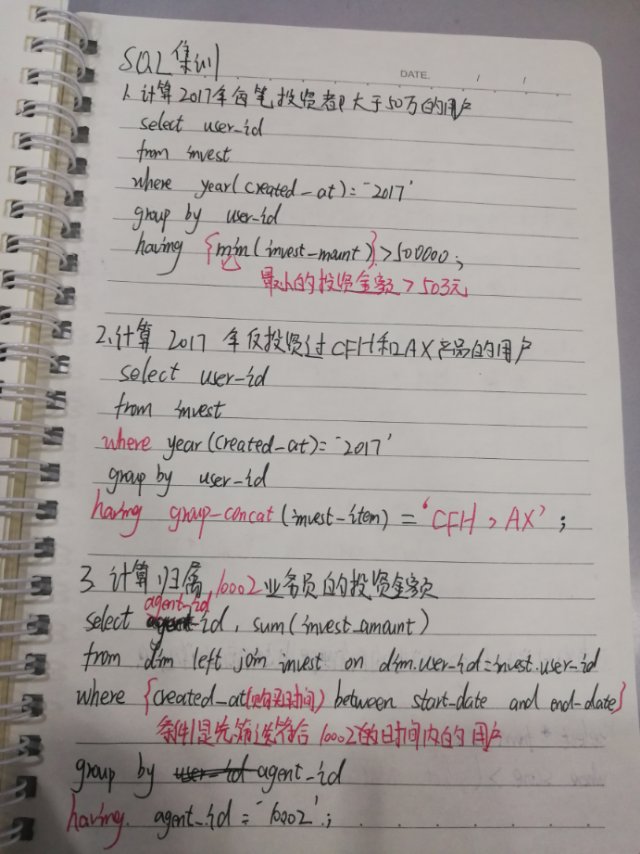 SQL集训
DATE. / /
1. 计算2017年每笔投资都大于50万的用户
select user_id
from invest
where year(created_at)='2017'
group by user_id
having {min(invest_maunt)}>500000;
最小的投资金额>50万元
2.计算 2017 年仅投资过CFH和AX产品的用户
select user_id
from invest
where year(created_at)='2017'
group by user_id
having group_concat(invest_item)='CFH,AX';
3. 计算归属10002业务员的投资金额
select agent_id, sum(invest_amount)
from dim left join invest on dim.user_id=invest.user_id
where {created_at(购买时间) between start_date and end_date}
条件1是先筛选符合10002的时间内的用户
group by agent_id
having agent_id='10002';